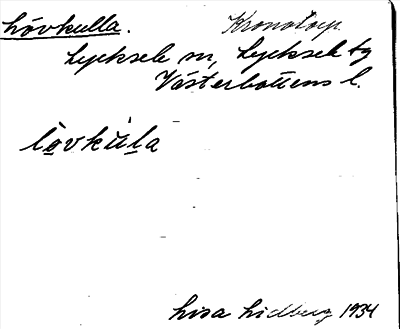 Lövkulla. Kronotorp
Lycksele sn, Lycksele tg
Västerbottens l.
lòvkùla
Lisa Lidberg 1934